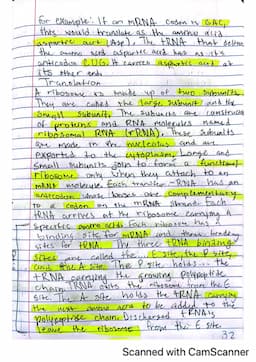 for example: If an mRNA codon is GAC,
this would translate as the amino acid
aspartic acid (Asp). The tRNA that delivers
the amino acid aspartic acid has as its
anticodon CUG. It carries aspartic acid at
its other end.
Translation
A ribosome is made up of two subunits.
They are called the large subunit and the
small subunit. The subunits are constructed
of proteins and RNA molecules named
ribosomal RNA (rRNA). These subunits
are made in the nucleolus and are
exported to the cytoplasm. Large and
small subunits join to form a functional
ribosome only when they attach to an
mRNA molecule. Each transfer-RNA has an
anticodon whose bases are complementary
to a codon on the mRNA strand. Each
tRNA arrives at the ribosome carrying a
specific amino acid. Each ribosome has a
binding site for mRNA and three binding
sites for tRNA. The three tRNA binding
sites are called the E site, the P site,
and the A site. The P site holds the
tRNA carrying the growing polypeptide
chain. tRNA exits the ribosome from the E
site. The A site holds the tRNA carrying
the next amino acid to be added to the
polypeptide chain. Discharged tRNAs
leave the ribosome from the E site.
32
Scanned with CamScanner